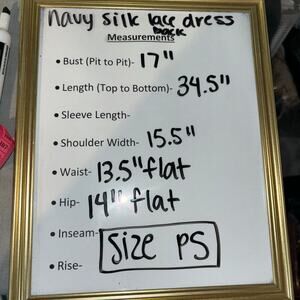 navy silk lace dress
back
Measurements
• Bust (Pit to Pit)- 17"
• Length (Top to Bottom)- 34.5"
• Sleeve Length-
• Shoulder Width- 15.5"
• Waist- 13.5" flat
• Hip- 14" flat
• Inseam-
Size PS
• Rise-